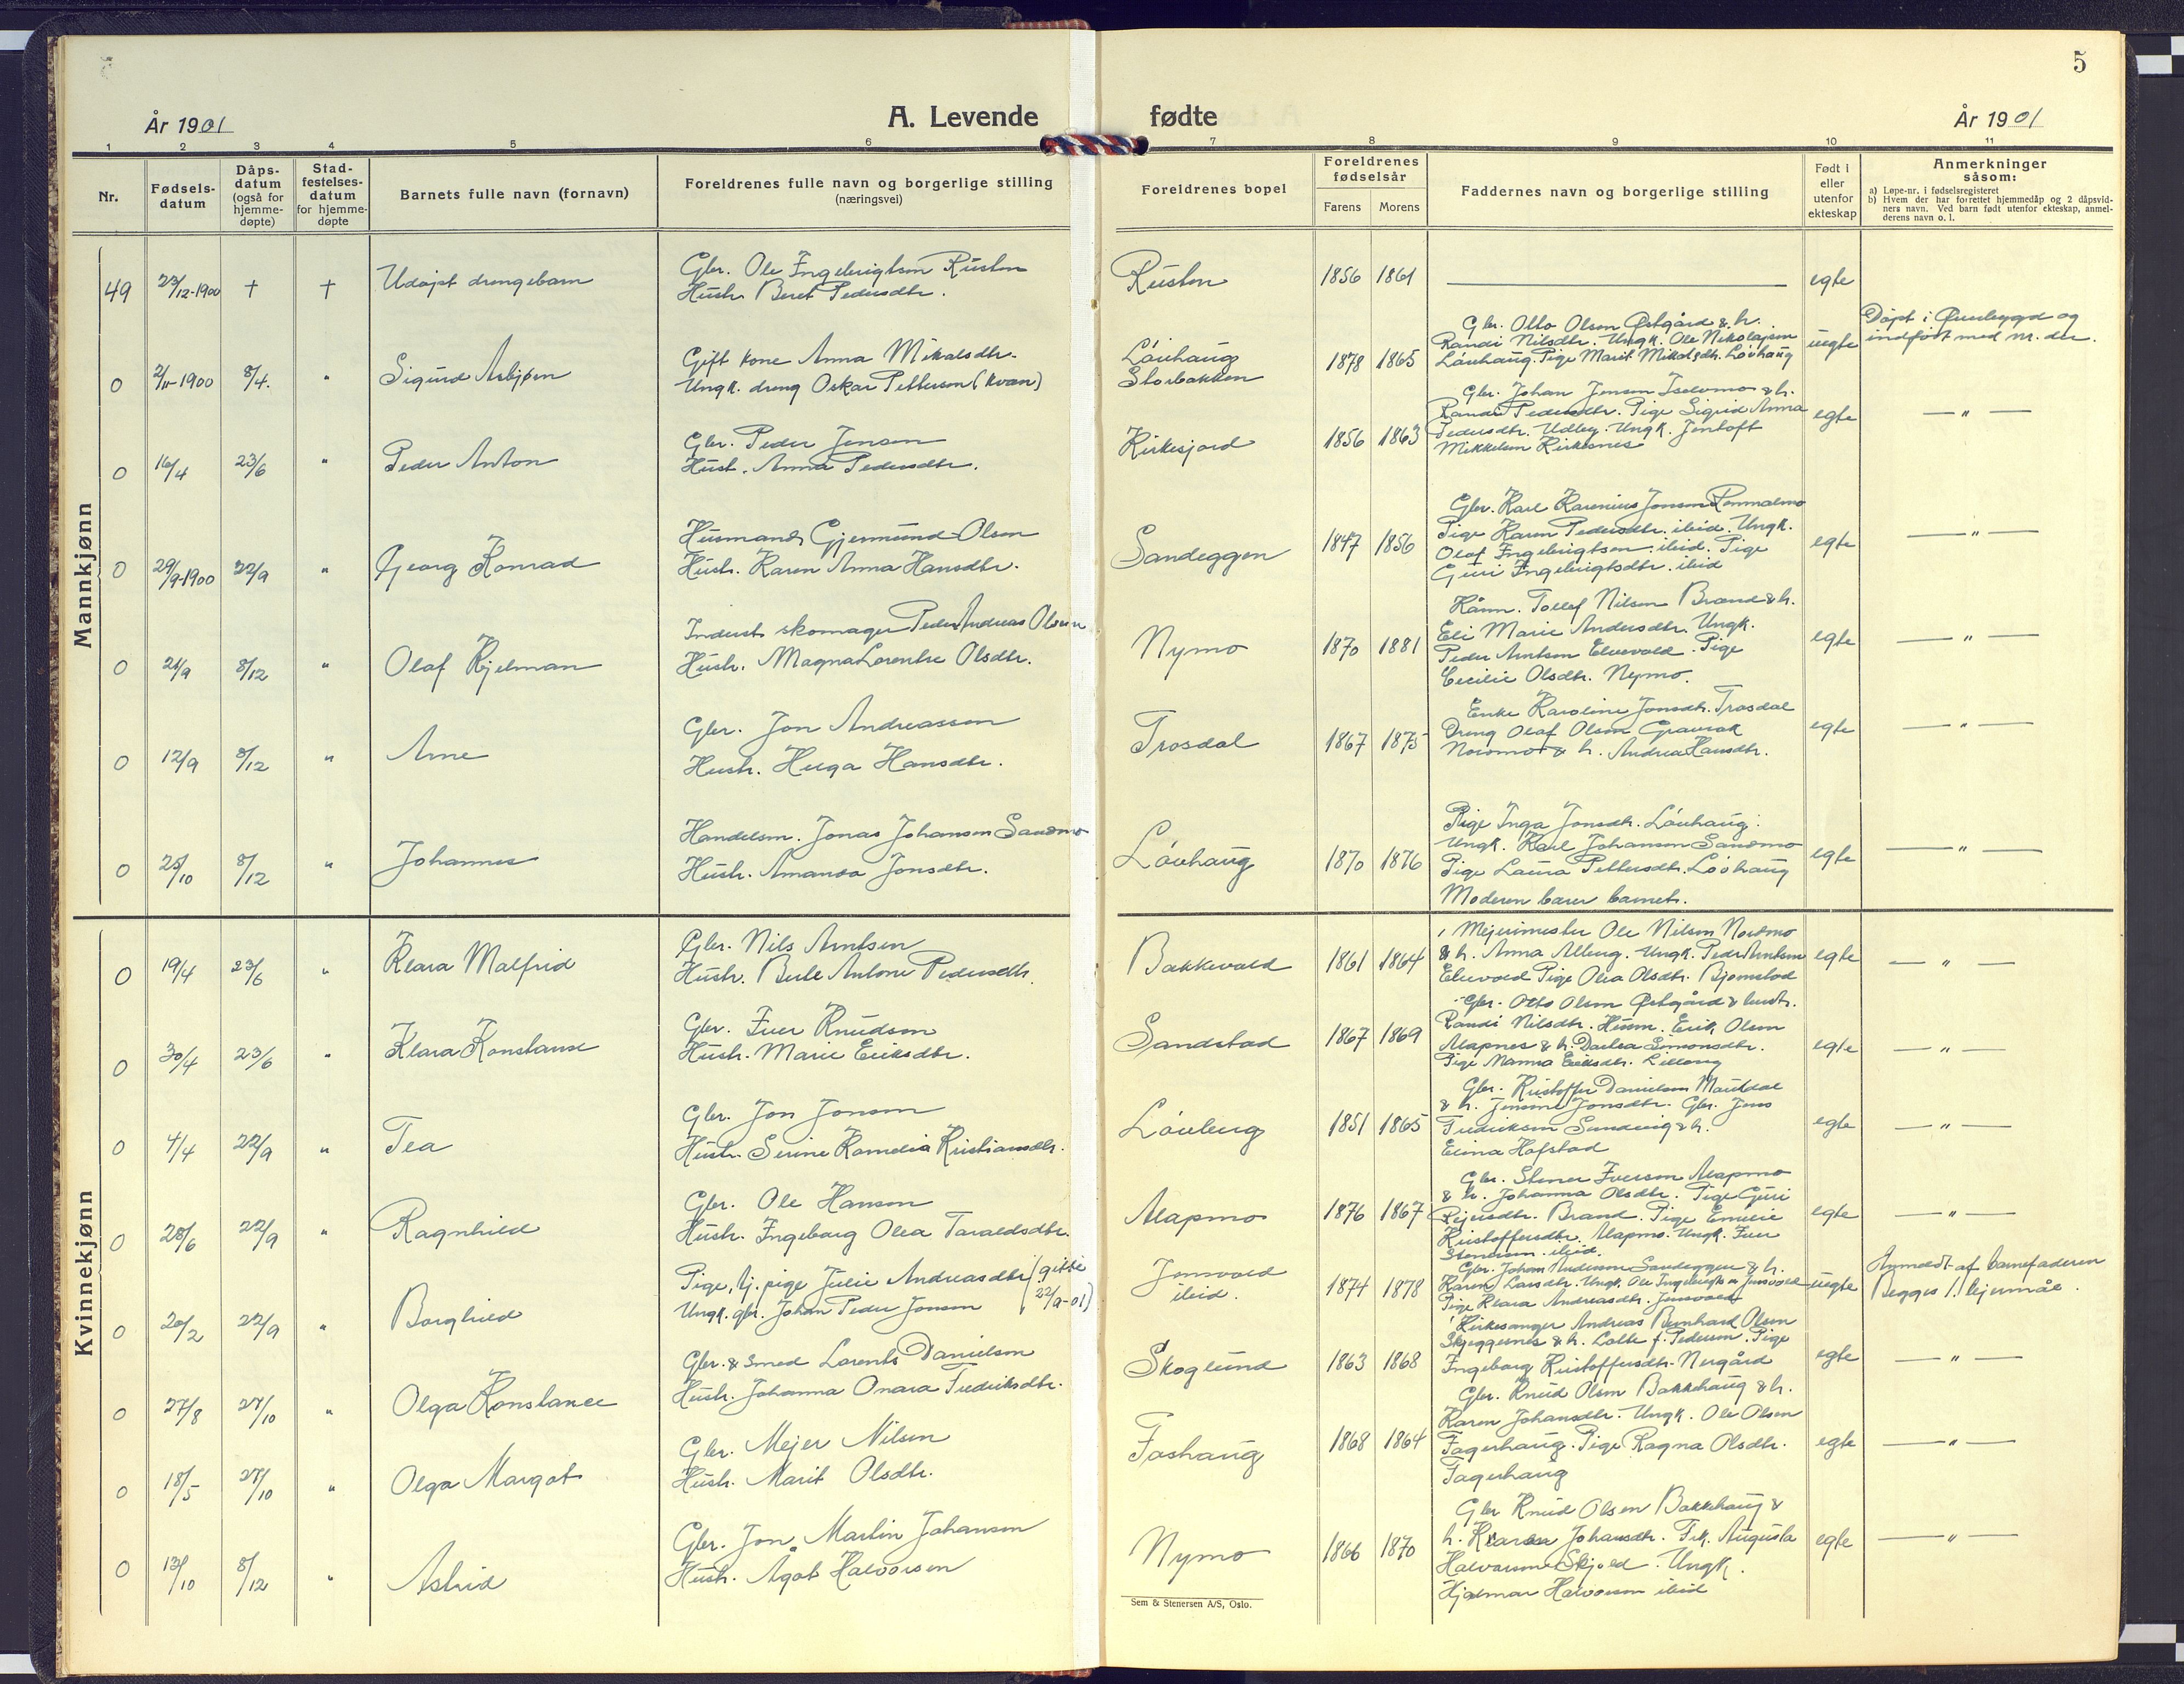 5
År 1901
A. Levende fødte
År 1901
1 2 3 4 5 6 7 8 9 10 11
Nr.
Fødsels-
datum
Dåps-
datum
(også for
hjemme-
døpte)
Stad-
festelses-
datum
for hjemme-
døpte
Barnets fulle navn (fornavn)
Foreldrenes fulle navn og borgerlige stilling
(næringsvei)
Foreldrenes bopel
Foreldrenes
fødselsår
Farens Morens
Faddernes navn og borgerlige stilling
Født i
eller
utenfor
ekteskap
Anmerkninger
såsom:
a) Løpe-nr. i fødselsregisteret
b) Hvem der har forrettet hjemmedåp og 2 dåpsvid-
ners navn. Ved barn født utenfor ekteskap, anmel-
derens navn o. l.
Mannkjønn
49 23/12-1900 † † Udøpt drengebarn
Gbr. Ole Ingebrigtson Rustan
Hustr. Beret Pedersdtr.
Rustan 1856 1861 egte
0 2/11-1900 8/4. " Sigurd Asbjørn
Gift kone Anna Mikalsdtr.
Ungk. dreng Oskar Petterson (kvæn)
Løvhaug
Storbakken
1878 1865
Gbr. Otto Olsen Østgård & h.
Randi Nilsdtr. Ungk. Ole Nikolajsen
Løvhaug. Pige Marit Mikalsdtr. Løvhaug
uegte
Døpt i Øverbygd og
indført med nr. der.
0 16/4 23/6 " Peder Anton
Gbr. Peder Jensen
Hust. Anna Pedersdtr.
Kirkesjord 1856 1863
Gbr. Johan Jensen Iselvmo & h.
Randi Pedersdtr. Pige Sigrid Anna
Pedersdtr. Udley. Ungk. Jentoft
Mikkelsen Kirkesnes
egte — " —
0 29/9-1900 22/9 " Georg Konrad
Husmand Gjermund Olsen
Hustr. Karen Anna Hansdtr.
Sandeggen 1847 1856
Gbr. Karl Karenius Jonson Rønmælmo
Pige Karen Pedersdtr. ibid. Ungk.
Olaf Ingebrigtsen. ibid. Pige
Guri Ingebrigtsdtr. ibid
egte — " —
0 21/9 8/12 " Olaf Hjelman
Inderst skomager Peder Andreas Olsen
Hustr. Magna Lorentse Olsdtr.
Nymo 1870 1881
Tollef Nilsen Brand & h.
Eli Marie Andersdtr. Ungk.
Peder Arntsen Elvevold. Pige
Cecilie Olsdtr. Nymo.
egte — " —
0 12/9 8/12 " Arne
Gbr. Jon Andreassen
Hustr. Helga Hansdtr.
Trosdal 1867 1875
Enke Karoline Jonsdtr. Trosdal
Dreng Olaf Olsen
Nordmo & h. Andrea Hansdtr.
egte — " —
0 25/10 8/12 " Johannes
Handelsm. Jonas Johanson Sandmo
Hustr. Amanda Jonsdtr.
Løvhaug 1870 1876
Pige Inga Jonsdtr. Løvhaug.
Ungk. Karl Johanson Sandmo
Pige Laura Pettersdtr. Løvhaug
Moderen bærer barnet.
egte — " —
Kvinnekjønn
0 19/4 23/6 " Klara Malfrid
Gbr. Nils Arntsen
Hustr. Berle Antone Pedersdtr.
Bakkevold 1861 1864
Mejerimester Ole Nilsen Nordmo
& h. Anna Ungk. Peder Arntsen
Elvevold Pige Olea Olsdtr. Bjørnstad
egte — " —
0 30/4 23/6 " Klara Konstanse
Gbr. Iver Knudsen
Hustr. Marie Eriksdtr.
Sandstad 1867 1869
Gbr. Otto Olsen Østgård & hustr.
Randi Nilsdtr. Husm. Erik Olsen
Alapnes & h. Dorlea Simonsdtr.
Pige Manna Eriksdtr. Lilleng
egte — " —
0 4/4 22/9 " Tea
Gbr. Jon Jonson
Hustr. Serine Kornelia Kristiansdtr.
Løvberg 1851 1865
Gbr. Kristoffer Danielsen Mauldal
& h. Jensine Jonsdtr. Gbr. Jens
Fredriksen Sundeng & h.
Elina Hofstad
egte — " —
0 28/6 22/9 " Ragnhild
Gbr. Ole Hanson
Hustr. Ingeborg Olea Taraldsdtr.
Alapmo 1876 1867
Gbr. Stener Iverson Alapmo
& h. Johanna Olsdtr. Pige Guri
Brand. Pige Emelie
Kristoffersdtr. Alapmo. Ungk. Iver
Stenersen. ibid.
egte — " —
0 20/2 22/9 " Borghild
Pige, tj. pige Julie Andreasdtr (gifte
Ungk. gbr. Johan Peder Jonsen 22/9-01)
Jensvold
ibid.
1874 1878
Gbr. Johan Anderson Sandeggen & h.
Karen Larsdtr. Ungk. Ole Ingebrigtsen Jensvold
Pige Klara Andreasdtr. Jensvold
uegte
Anmeldt af barnefaderen
Begges 1. lejermål.
0 27/8 27/10 " Olga Konstance
Gbr. & smed Lorents Danielsen
Hustr. Johanna Onara Fredriksdtr.
Skoglund 1863 1868
Kirkesanger Andreas Bernhard Olsen
Skjeggesnes & h. Lotte f. Pedersen. Pige
Ingeborg Kristoffersdtr. Nergård
egte — " —
0 18/5 27/10 " Olga Margot
Gbr. Mejer Nilsen
Hustr. Marit Olsdtr.
Foshaug 1868 1864
Gbr. Knud Olsen Bakkehaug & h.
Karen Johansdtr. Ungk. Ole Olsen
Fagerhaug. Pige Ragna Olsdtr.
Fagerhaug
egte — " —
0 13/10 8/12 " Astrid
Gbr. Jon Martin Johansen
Hustr. Ågot Halvorsen
Nymo 1866 1870
Gbr Knud Olsen Bakkehaug &
h. Karen Johansdtr. Frk. Augusta
Halvorsen Skjold. Ungk.
Hjalmar Halvorsen ibid
egte — " —
Sem & Stenersen A/S, Oslo.